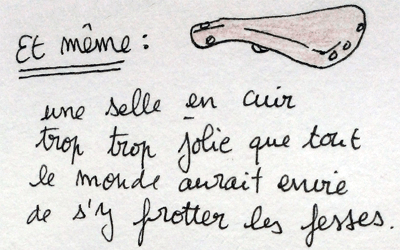 Et même :
une selle en cuir
trop trop jolie que tout
le monde aurait envie
de s'y frotter les fesses.